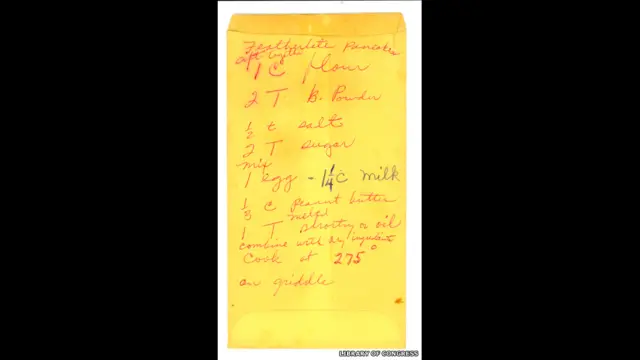 Featherlite Pancakes
sift together
1 C flour
2 T B. Powder
1/2 t salt
2 T sugar
mix
1 egg - 1 1/4 C milk
1/3 C peanut butter
melted
1 T shortng or oil
combine with dry ingredients
Cook at 275°
on griddle
LIBRARY OF CONGRESS